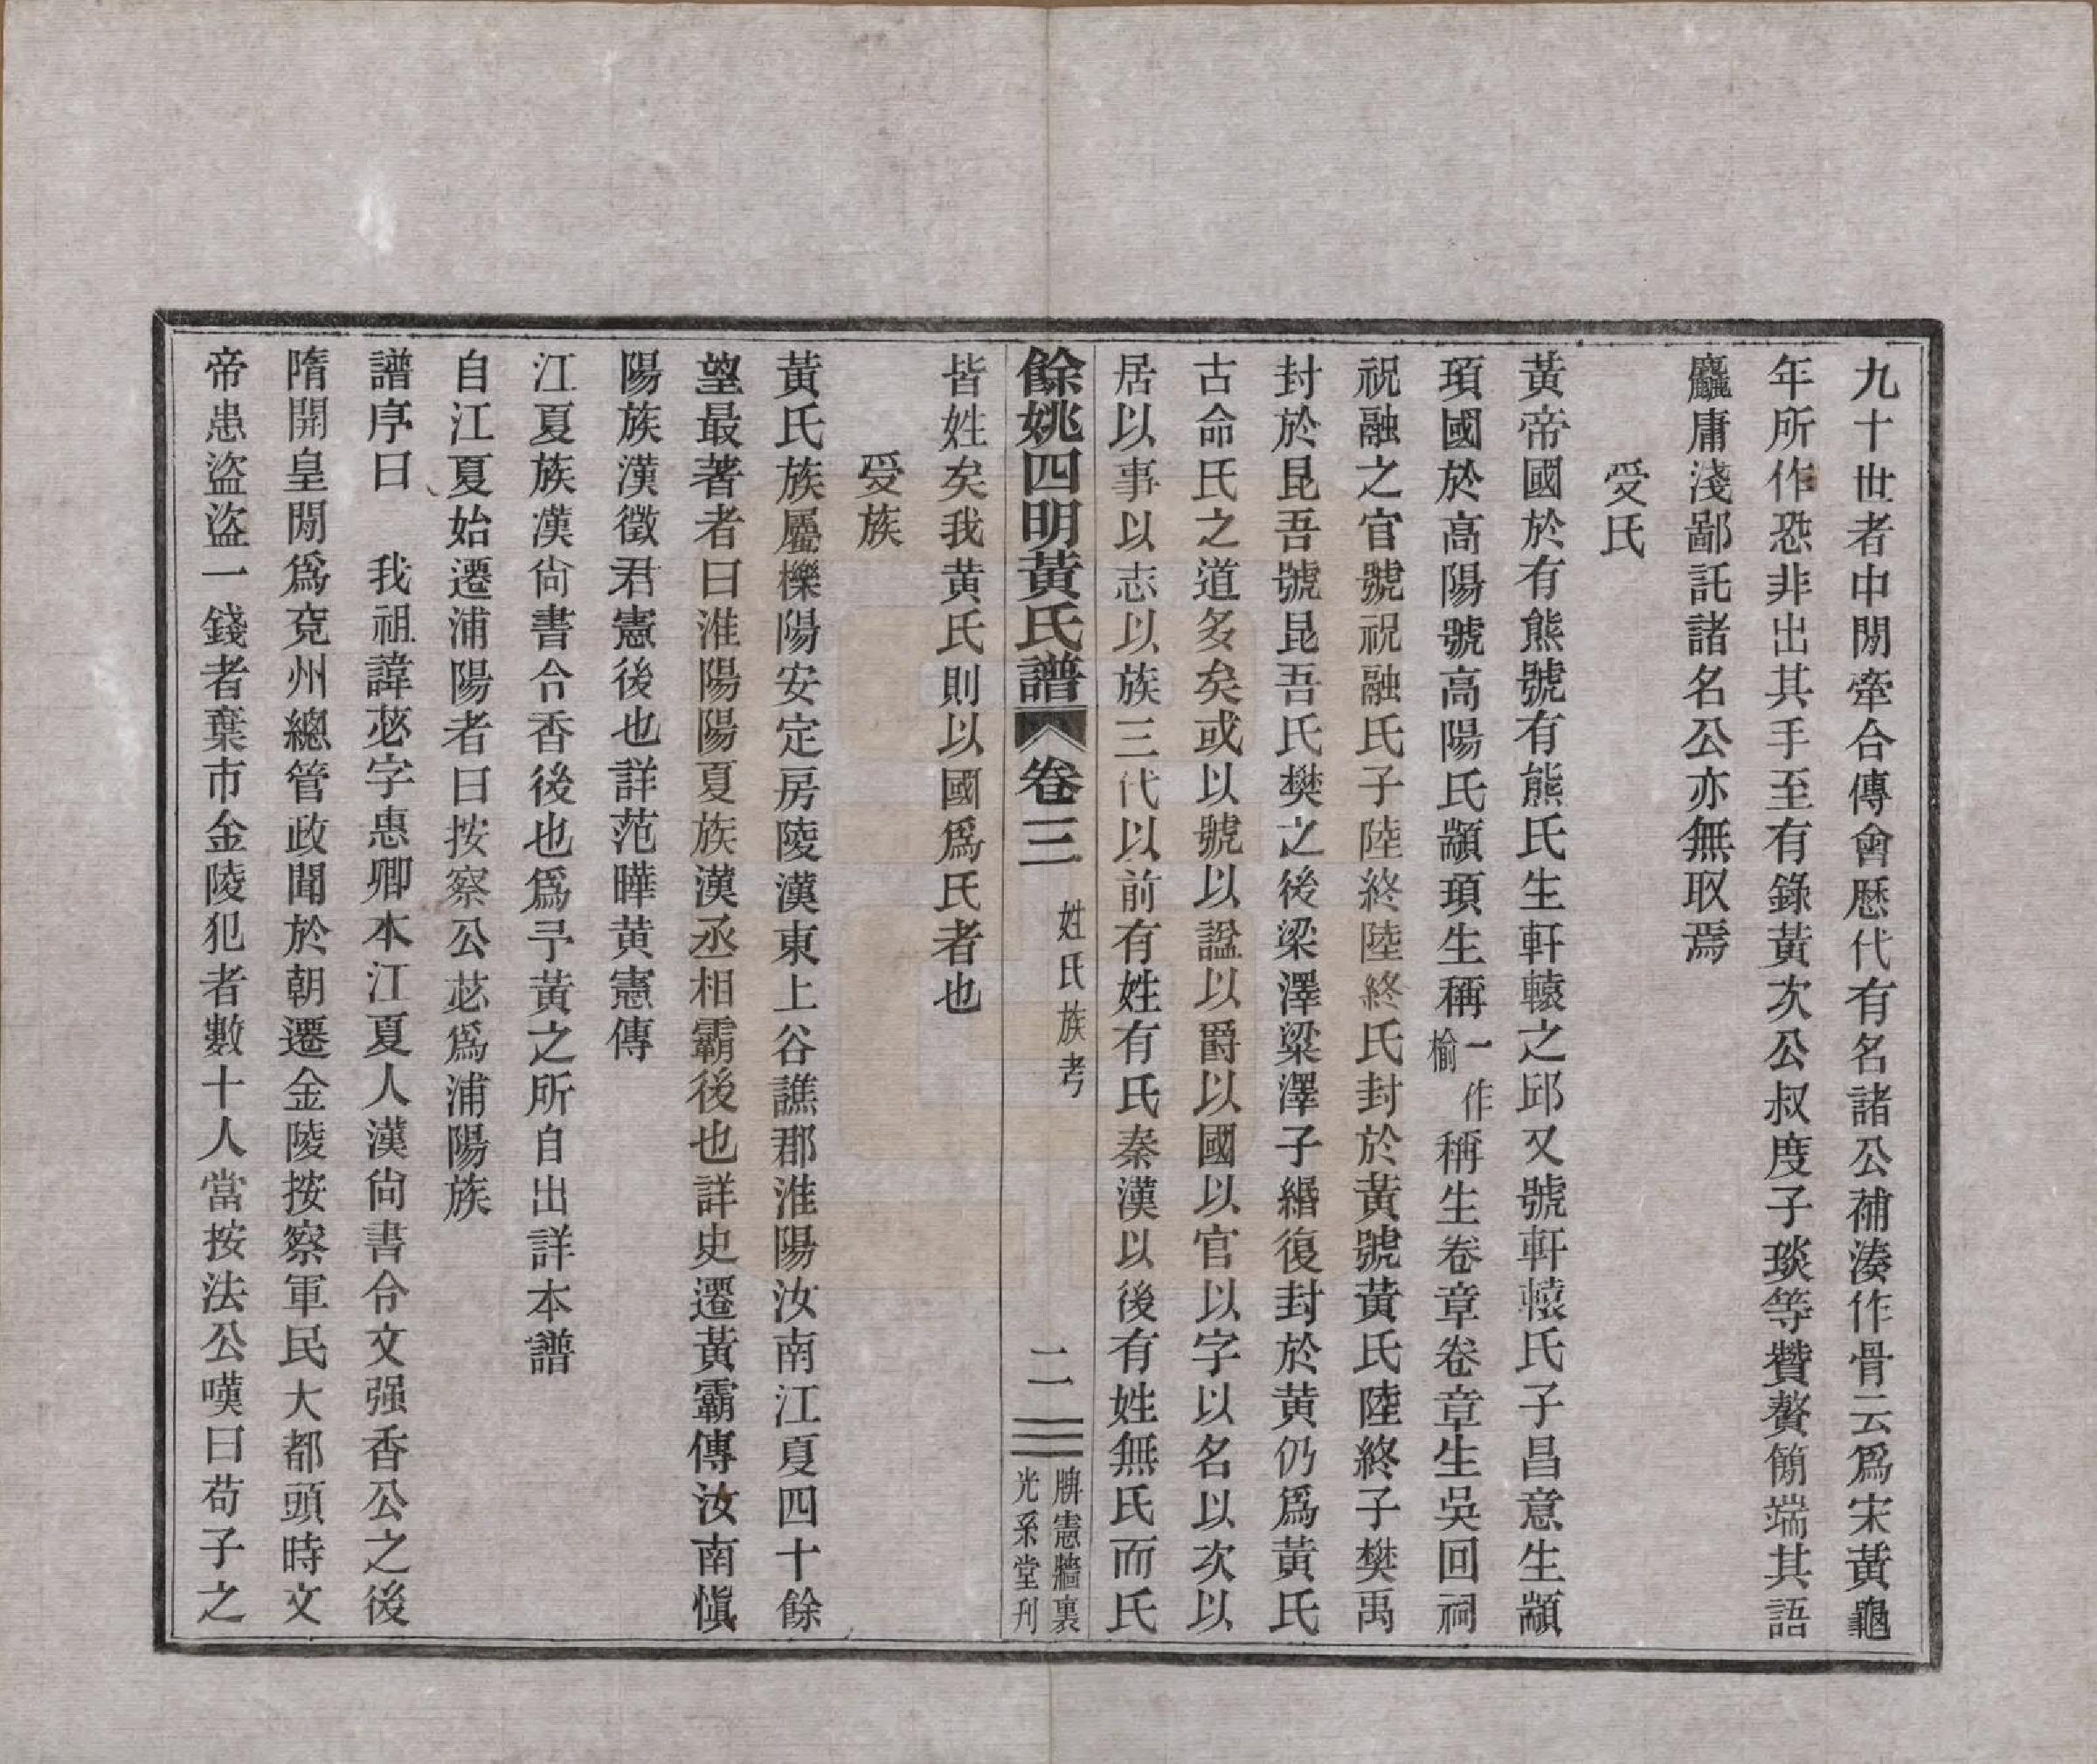 九十世者中閒牽合傳會歷代有名諸公補湊作骨云爲宋黃龜
年所作恐非出其手至有錄黃次公叔度子琰等贊贅簡端其語
麤庸淺鄙託諸名公亦無取焉
受氏
黃帝國於有熊號有熊氏生軒轅之邱又號軒轅氏子昌意生顓
頊國於高陽號高陽氏顓頊生稱一作榆稱生卷章卷章生吳回祠
祝融之官號祝融氏子陸終陸終氏封於黃號黃氏陸終子樊禹
封於昆吾號昆吾氏樊之後梁澤梁澤子緡復封於黃仍爲黃氏
古命氏之道多矣或以號以諡以爵以國以官以字以名以次以
居以事以志以族三代以前有姓有氏秦漢以後有姓無氏而氏
餘姚四明黃氏譜 卷三 姓氏族考 二 牌憲牆裏 光系堂刊
皆姓矣我黃氏則以國爲氏者也
受族
黃氏族屬櫟陽安定房陵漢東上谷譙郡淮陽汝南江夏四十餘
望最著者曰淮陽陽夏族漢丞相霸後也詳史遷黃霸傳汝南愼
陽族漢徵君憲後也詳范曄黃憲傳
江夏族漢尙書令香後也爲予黃之所自出詳本譜
自江夏始遷浦陽者曰按察公苾爲浦陽族
譜序曰 我祖諱苾字惠卿本江夏人漢尙書令文强香公之後
隋開皇閒爲兗州總管政聞於朝遷金陵按察軍民大都頭時文
帝患盜盜一錢者棄市金陵犯者數十人當按法公嘆曰苟子之